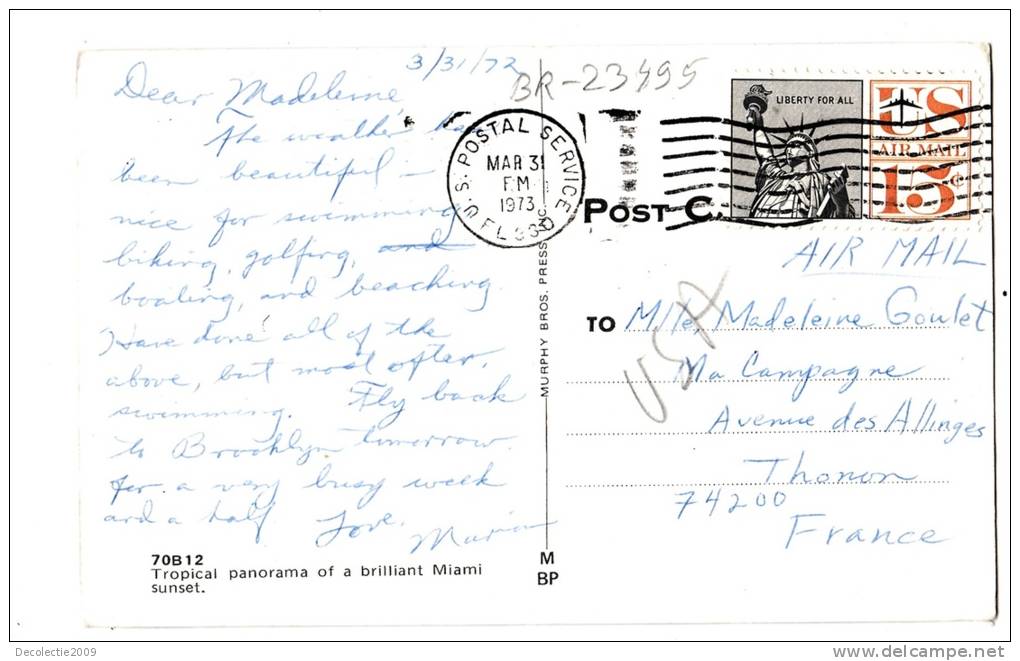 3/31/72
BR-23495
Dear Madeleine,
The weather has
been beautiful —
nice for swimming
biking, golfing, and
boating, and beaching.
Have done all of the
above, but most often,
swimming. Fly back
to Brooklyn tomorrow
for a very busy week
and a half. Love,
Marion
70B12
Tropical panorama of a brilliant Miami
sunset.
MURPHY BROS. PRESS INC.
M
BP
U.S. POSTAL SERVICE
MAR 31
PM
1973
FL 330
POST C
LIBERTY FOR ALL
US
AIR MAIL
15c
AIR MAIL
TO Mlle. Madeleine Goulet
Ma Campagne
Avenue des Allinges
Thonon
74200
France
USA
Decolectie2009
www.delcampe.net